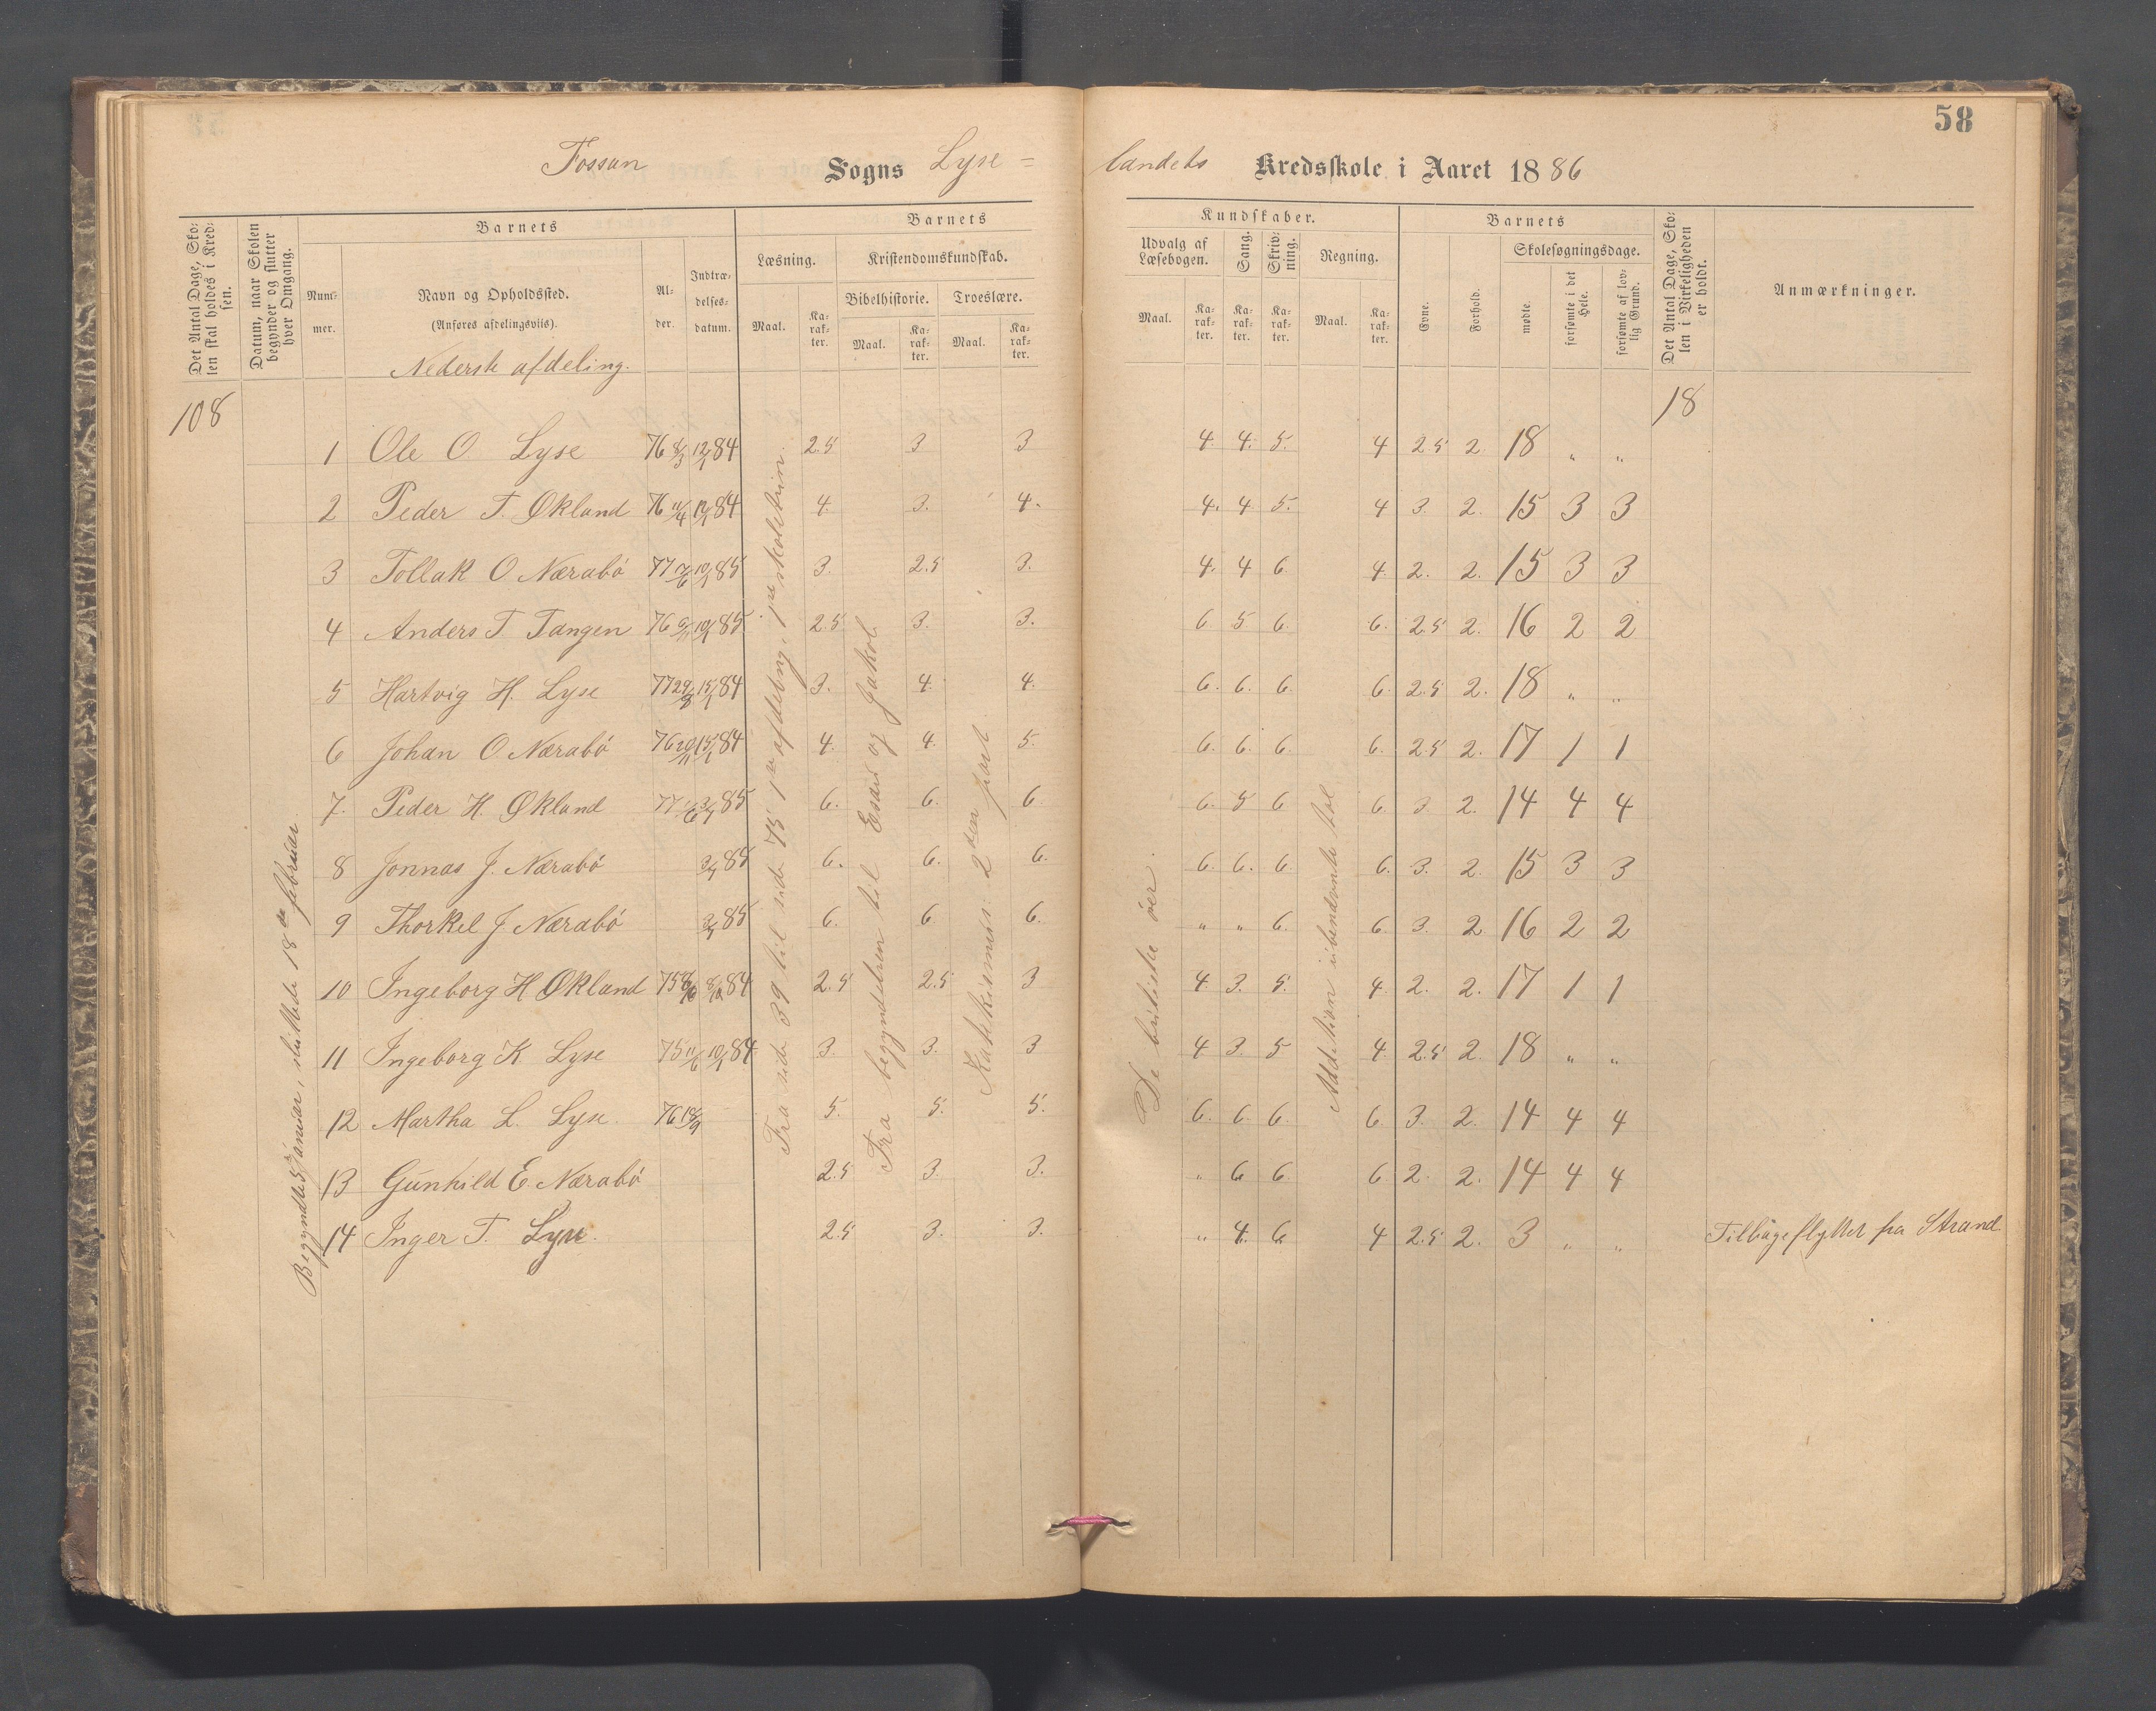 58
Fossan Sogns Lyse = landets Kredsskole i Aaret 1886
Det Antal Dage, Skolen skal holdes i Kredsen.
Datum, naar Skolen begynder og slutter hver Omgang.
Barnets
Nummer.
Navn og Opholdssted.
(Anføres afdelingsviis).
Alder.
Indtrædelsesdatum.
Barnets
Læsning.
Maal.
Karakter.
Kristendomskundskab.
Bibelhistorie.
Maal.
Karakter.
Troeslære.
Maal.
Karakter.
Kundskaber.
Udvalg af Læsebogen.
Maal.
Karakter.
Sang.
Karakter.
Skrivning.
Karakter.
Regning.
Maal.
Karakter.
Barnets
Evne.
Forhold.
Skolesøgningsdage.
mødte.
forsømte i det Hele.
forsømte af lovlig Grund.
Det Antal Dage, Skolen i Virkeligheden er holdt.
Anmærkninger.
Nederste afdeling.
108 18
1 Ole O. Lyse 76 8/3 12/1 84 2.5 3 3 4. 4. 5. 4 2.5 2. 18 " "
2 Peder T. Økland 76 11/4 84 4. 3. 4. 4. 4 5. 4 3. 2. 15 3 3
3 Tollak O. Nærabø 77 85 3. 2.5 3. 4. 4 6 4. 2. 2. 15 3 3
4 Anders T. Tangen 76 85 2.5 3. 3. 6 5 6. 6. 2.5 2. 16 2 2
5 Hartvig H. Lyse 77 29/8 15/1 84 3. 4. 4. 6. 6. 6. 6. 2.5 2. 18 " "
6 Johan O. Nærabø 76 20/11 15/1 84 4. 4. 5. 6. 6. 6. 6. 2.5 2. 17 1 1
7. Peder H. Økland 77 85 6. 6. 6. 6. 5 6 6. 3. 2. 14 4 4
8 Jonnas J. Nærabø 85 6. 6. 6. 6. 6. 6. 6. 3. 2. 15 3 3
9 Thorkel J. Nærabø 85 6. 6. 6. " " 6. 6. 3. 2. 16 2 2
10 Ingeborg H. Økland 75 84 2.5 2.5 3 4. 3. 5. 4. 2. 2. 17 1 1
11 Ingeborg K. Lyse 75 11/6 10/1 84 3. 3. 3 4 3. 5 4. 2.5 2. 18 " "
12 Martha L. Lyse. 76 18/9 5. 5. 5. 6. 6. 6. 6. 3. 2. 14 4 4
13 Gunhild E. Nærabø 2.5 3. 3. " 6 6. 6 2. 2. 14 4 4
14 Inger T. Lyse. 2.5 3. 3. " 4. 6. 4 2.5 2. 3 " " Tilbageflyttet fra Strand
Begyndte januar, sluttede 18de februar.
Fra side 39 til side 75 1ste afdeling, 1ste skoletrin.
Fra begyndelsen til Esau og Jakob.
Katekismus: 2den part.
De læste over.
Addition ubenævnte tal.